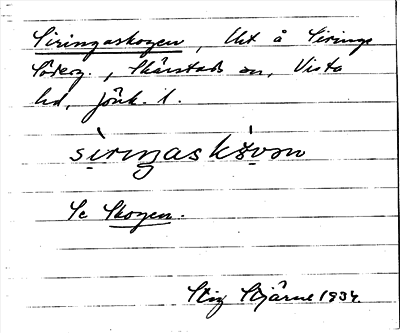 Siringaskogen, Utt å Sirings
Söderg., Skärstads sn, Vista
hd, Jönk. l.
sìriŋaskòvən
Se Skogen.
Stig Stjärne 1934.